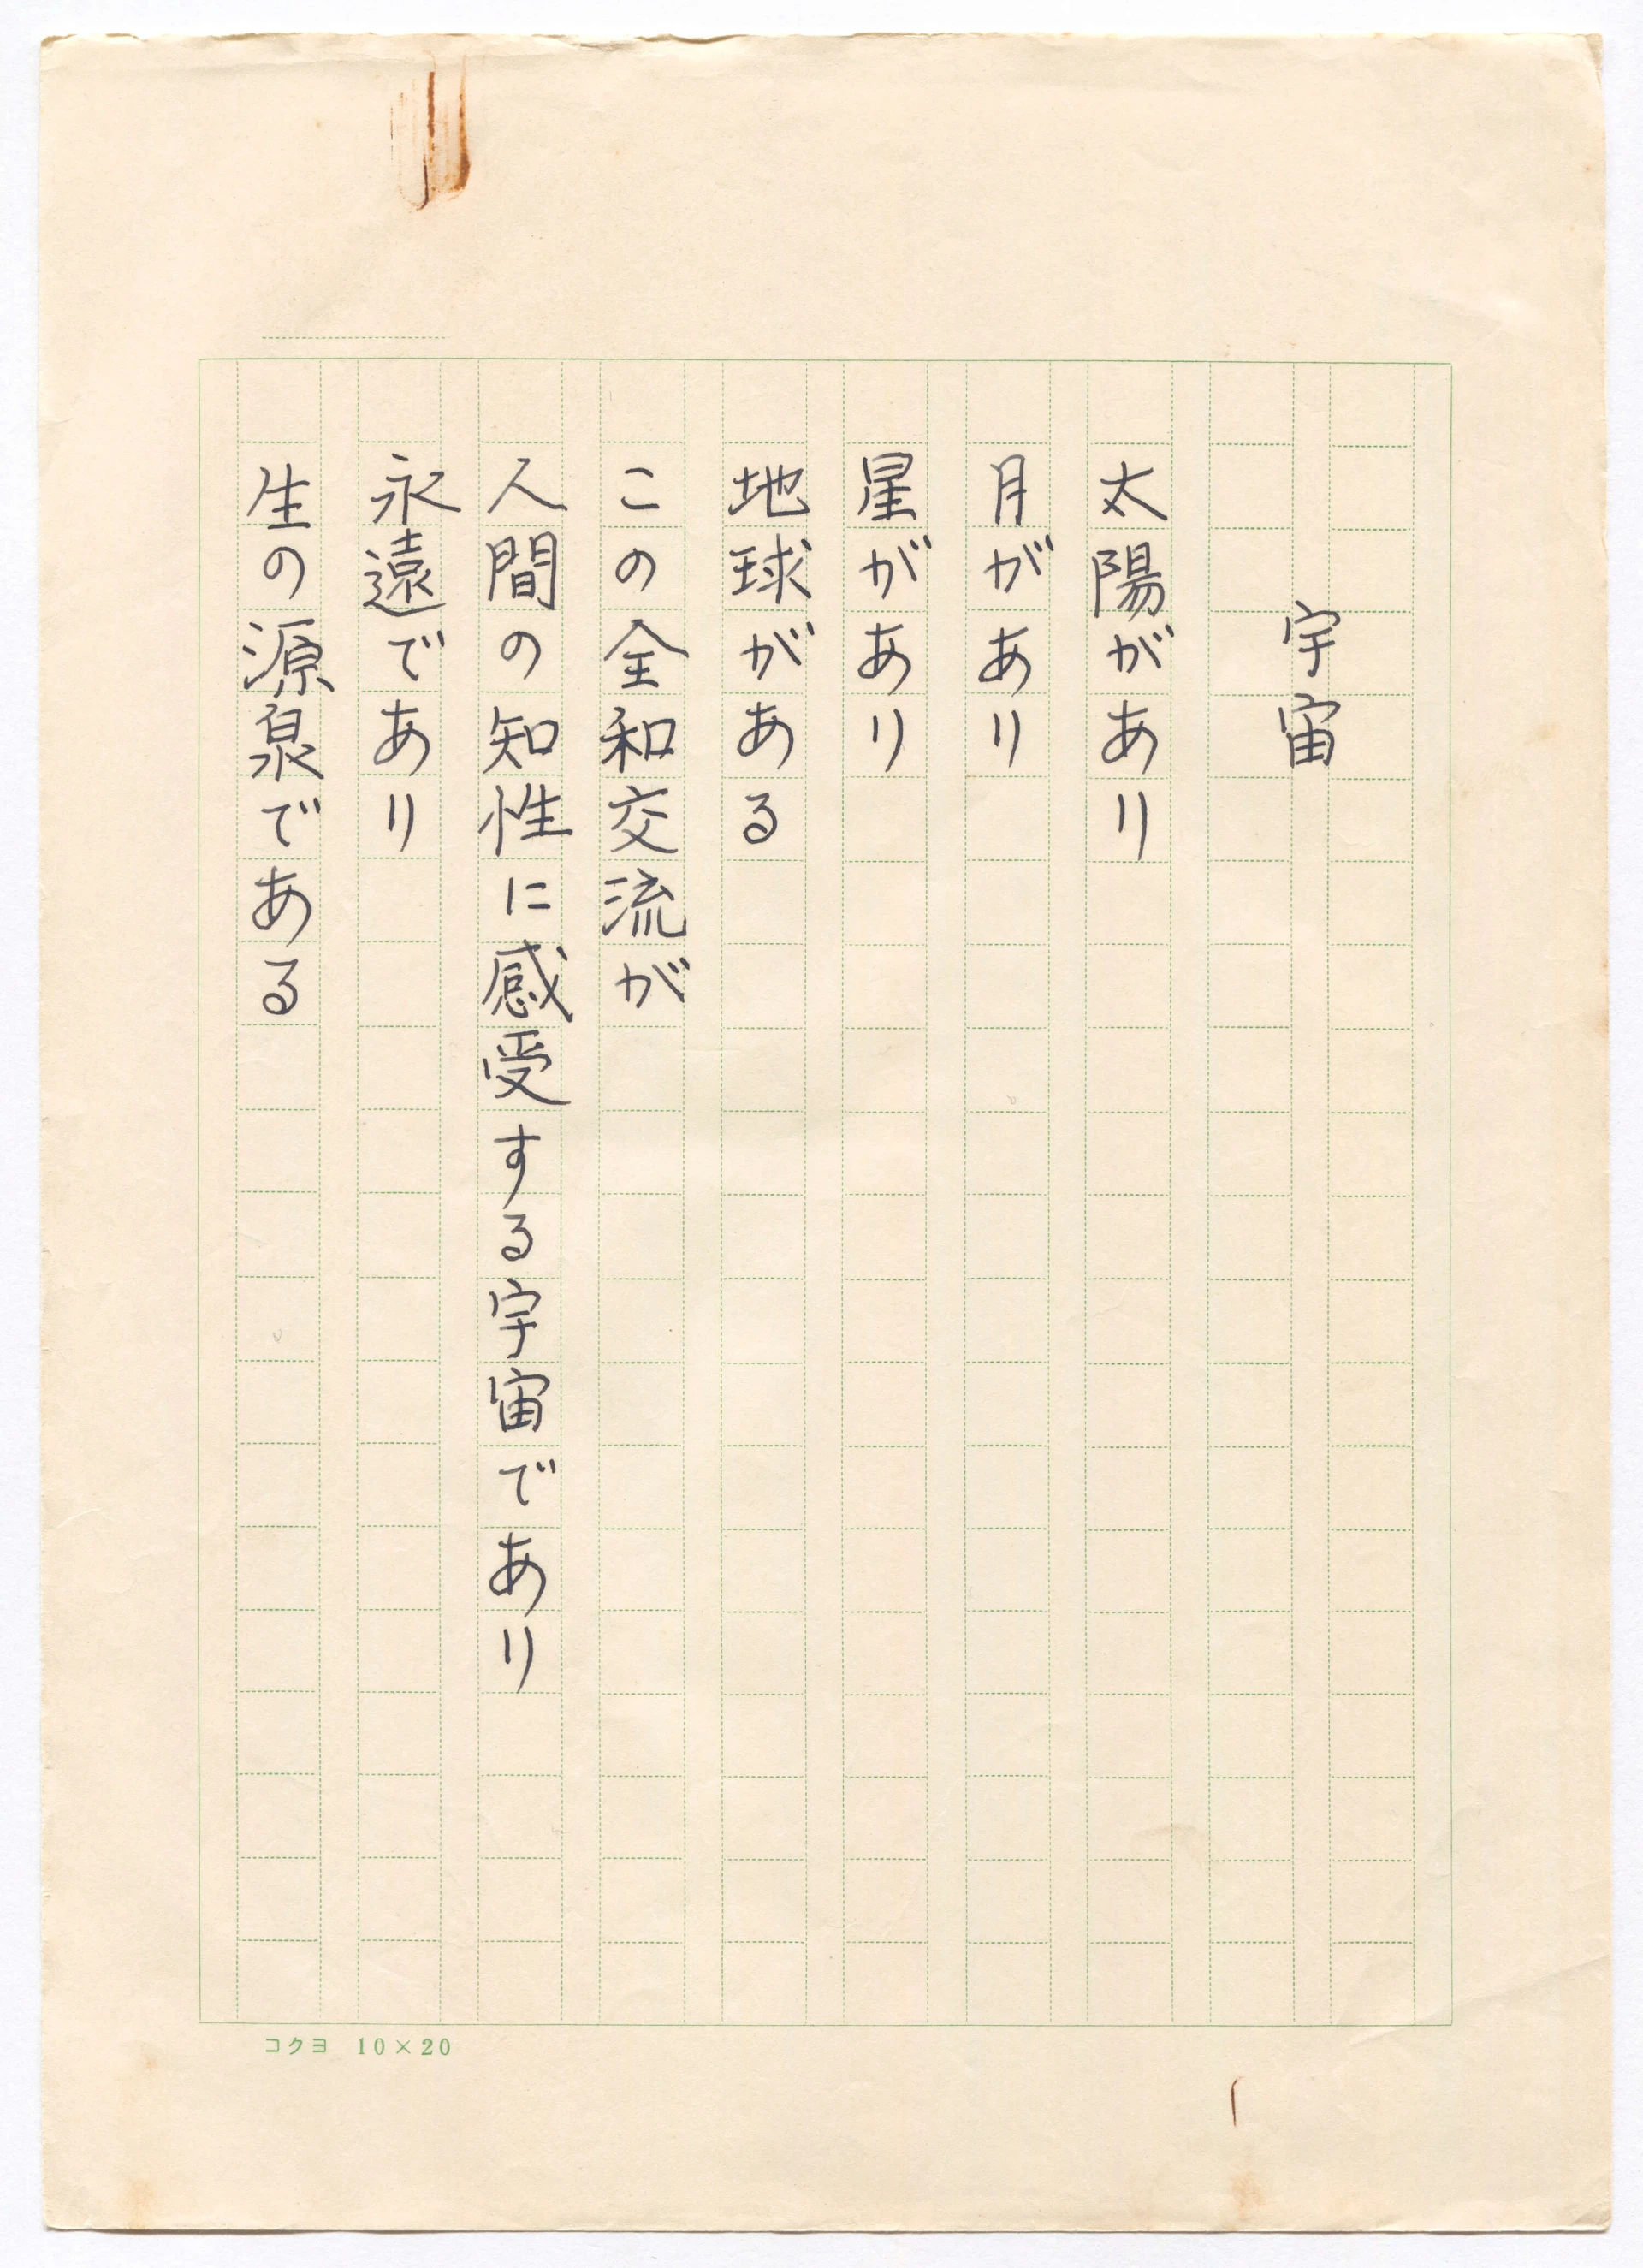 宇宙
太陽があり
月があり
星があり
地球がある
この全和交流が
人間の知性に感受する宇宙であり
永遠であり
生の源泉である
コクヨ 10×20